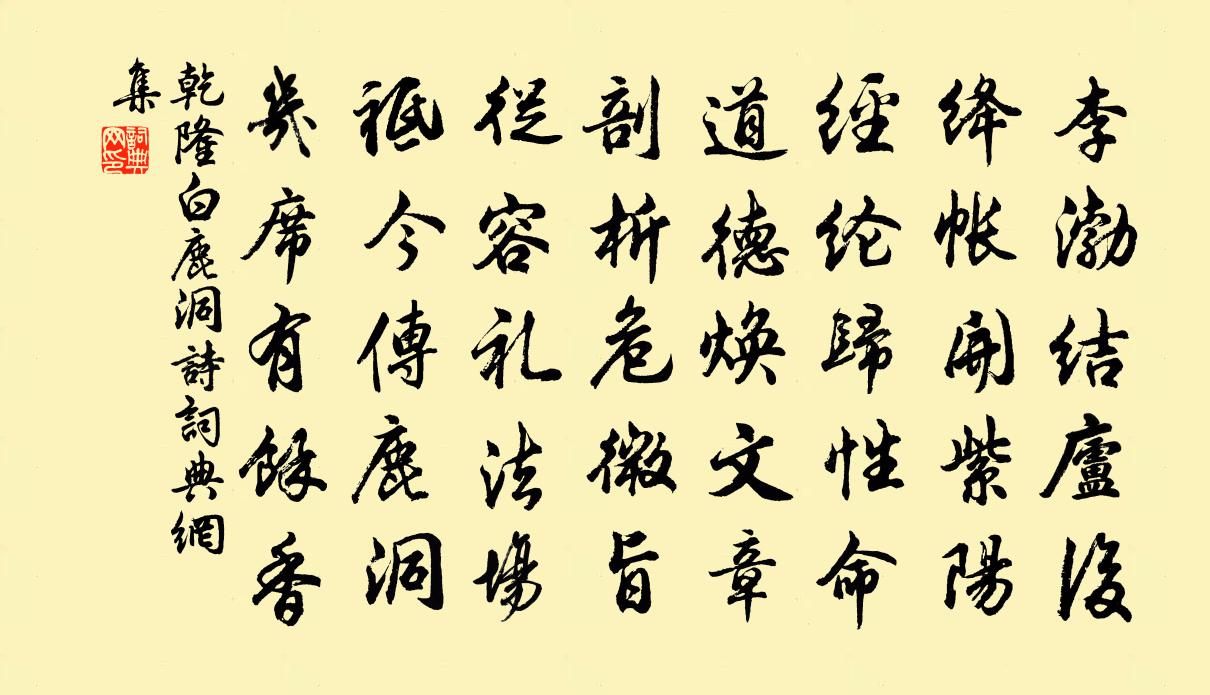 李渤结廬後
绛帐開紫陽
經纶歸性命
道德焕文章
剖析危微旨
從容礼法場
祗今傳鹿洞
幾席有餘香
乾隆白鹿洞詩詞典網
集
詞典
网印